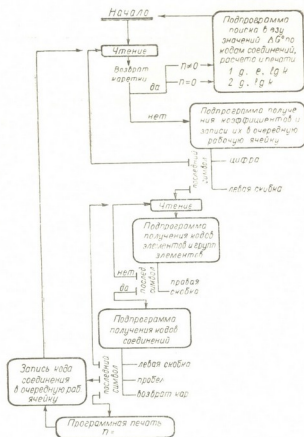 Начало
Чтение
Возврат
каретки
да
n≠0
n=0
Подпрограмма
поиска в вазу
значений ΔG° по
кодам соединений,
расчета и печати
1 g. e, lg k
2 g, lg k
нет
Подпрограмма получе-
ния коэффициентов и
записи их в очередную
рабочую ячейку
последний
символ
цифра
левая скобка
Чтение
Подпрограмма
получения кодов
элементов и групп
элементов
нет
да
послед
символ
правая
скобка
Подпрограмма
получения кодов
соединений
последний
символ
левая скобка
пробел
возврат кар
Запись кода
соединения
в очередную раб.
ячейку
Программная печать
n =